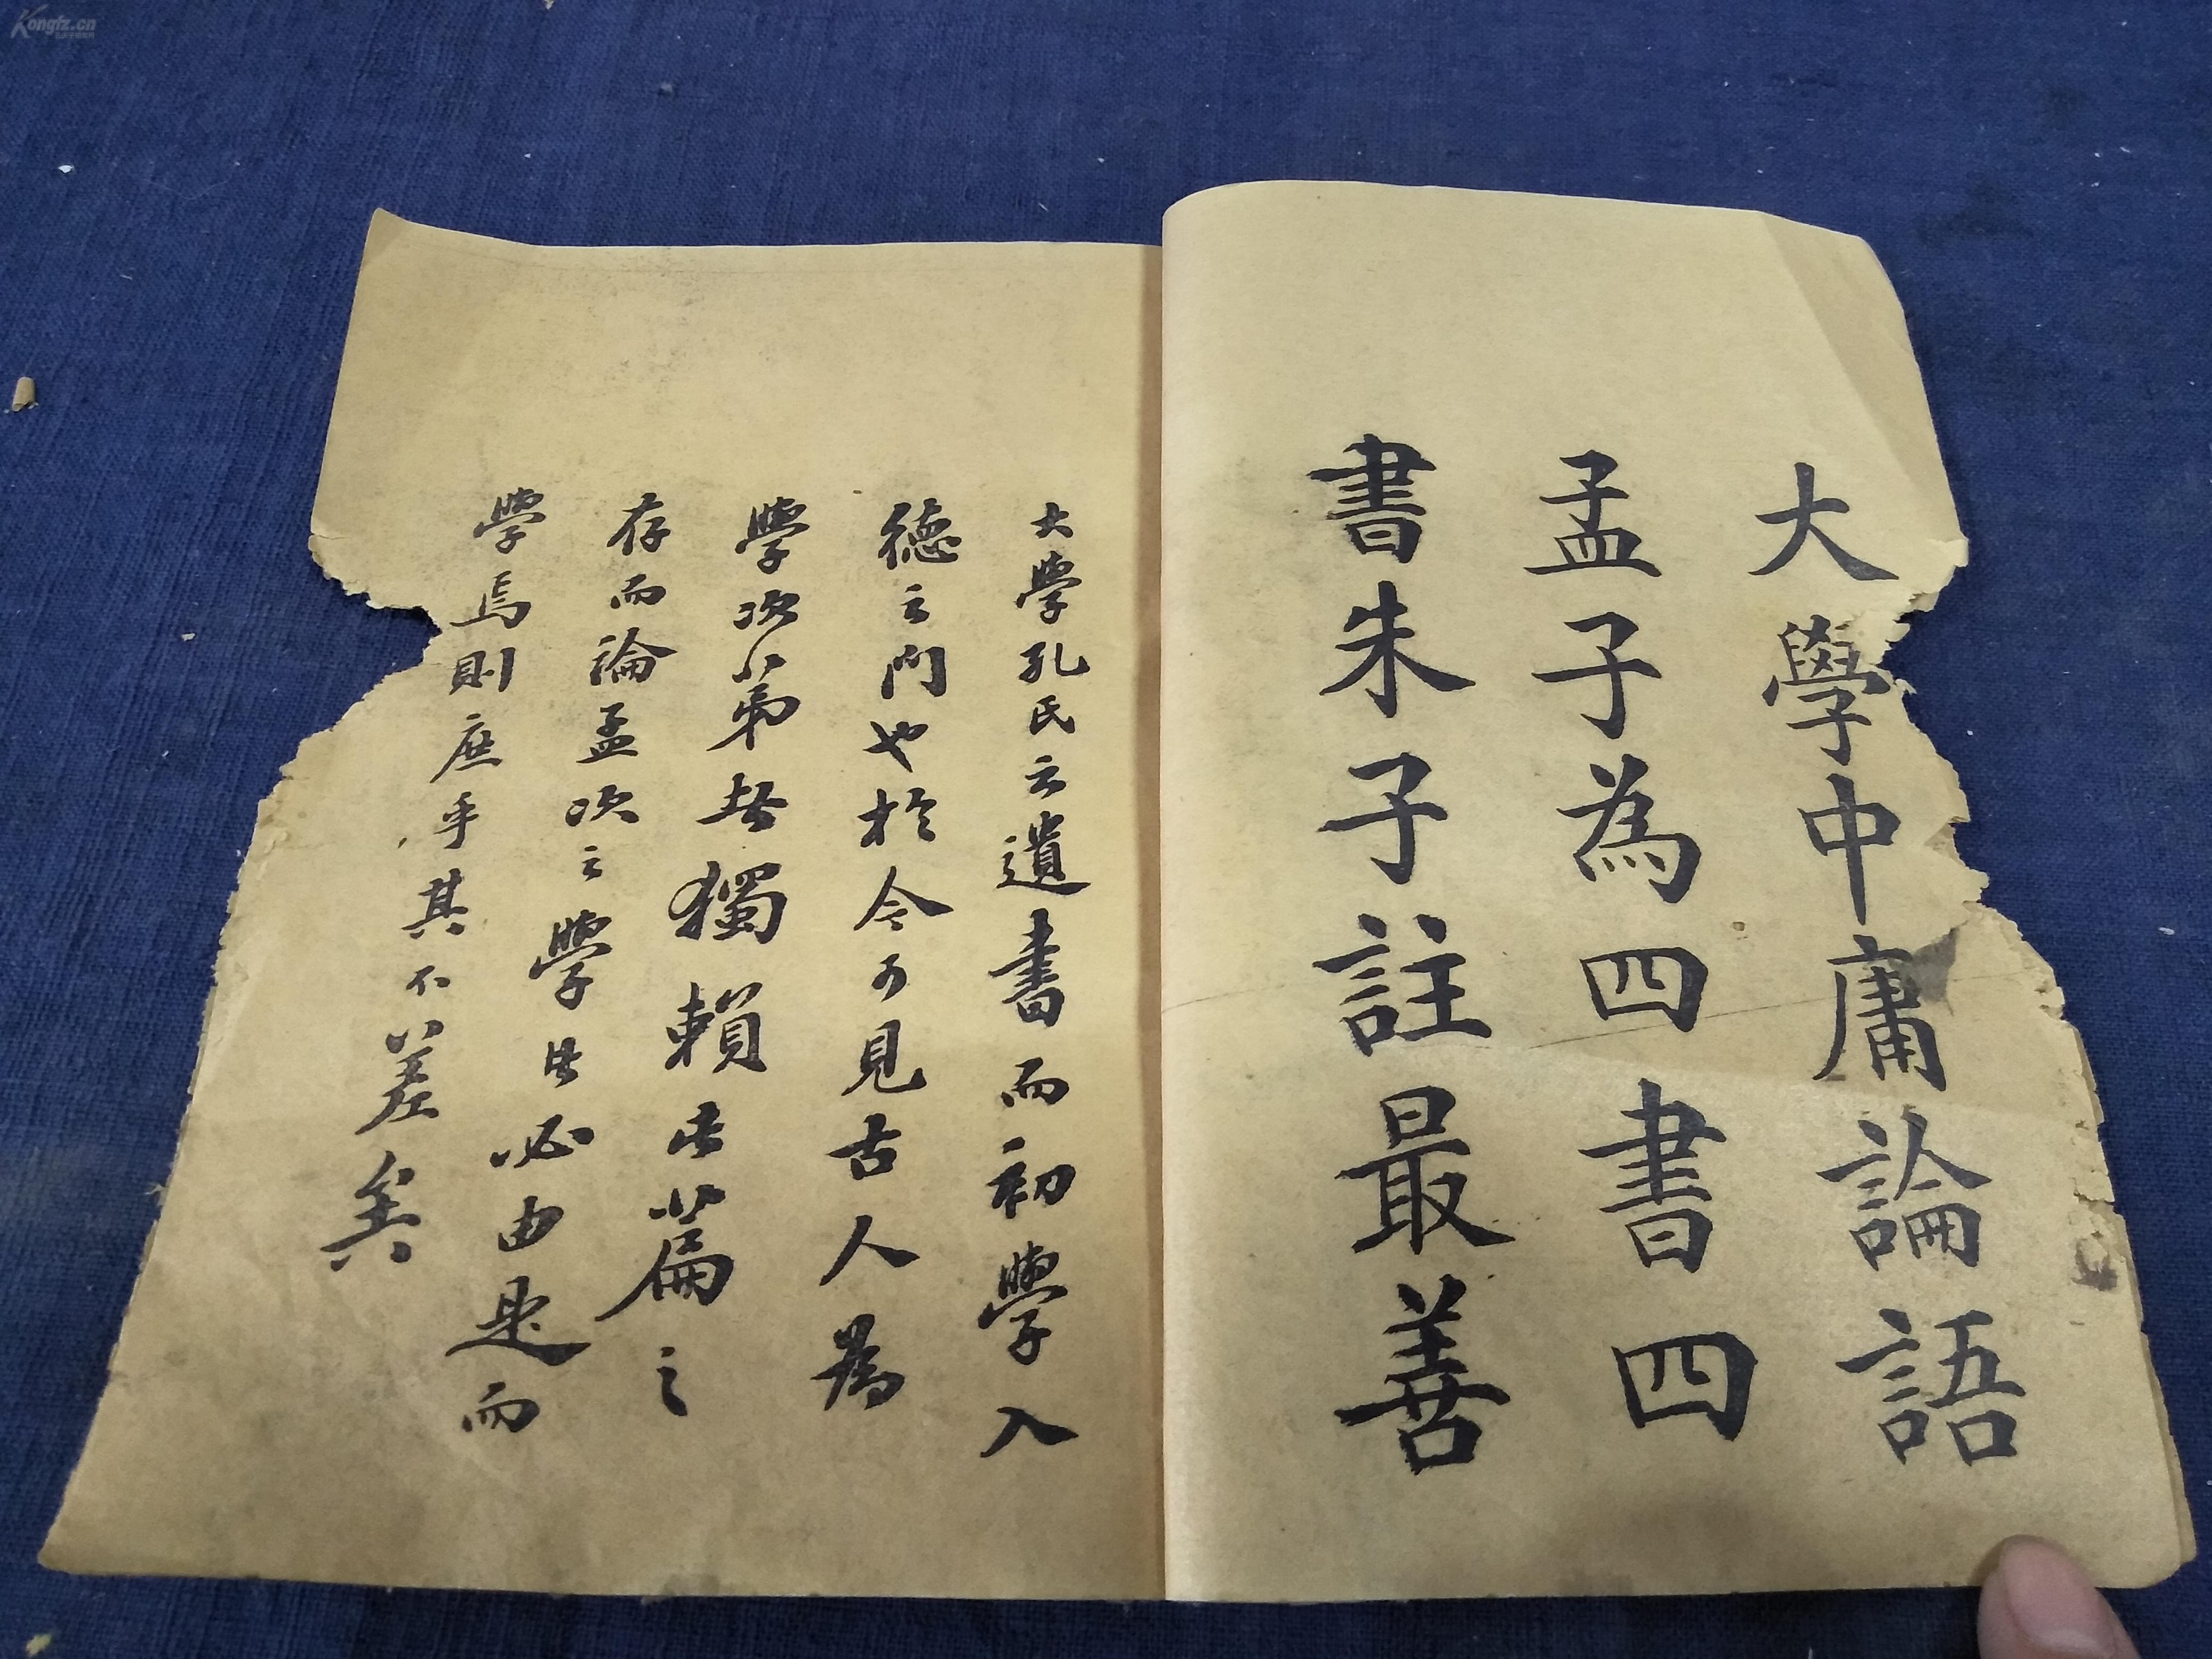 大學中庸論語
孟子為四書四
書朱子註最善
大學孔氏云遺書而初學入
德之門也於今可見古人為
學次第者獨賴此篇之
存而論孟次之學者必由是而
學焉則庶乎其不差矣
Kongfz.cn